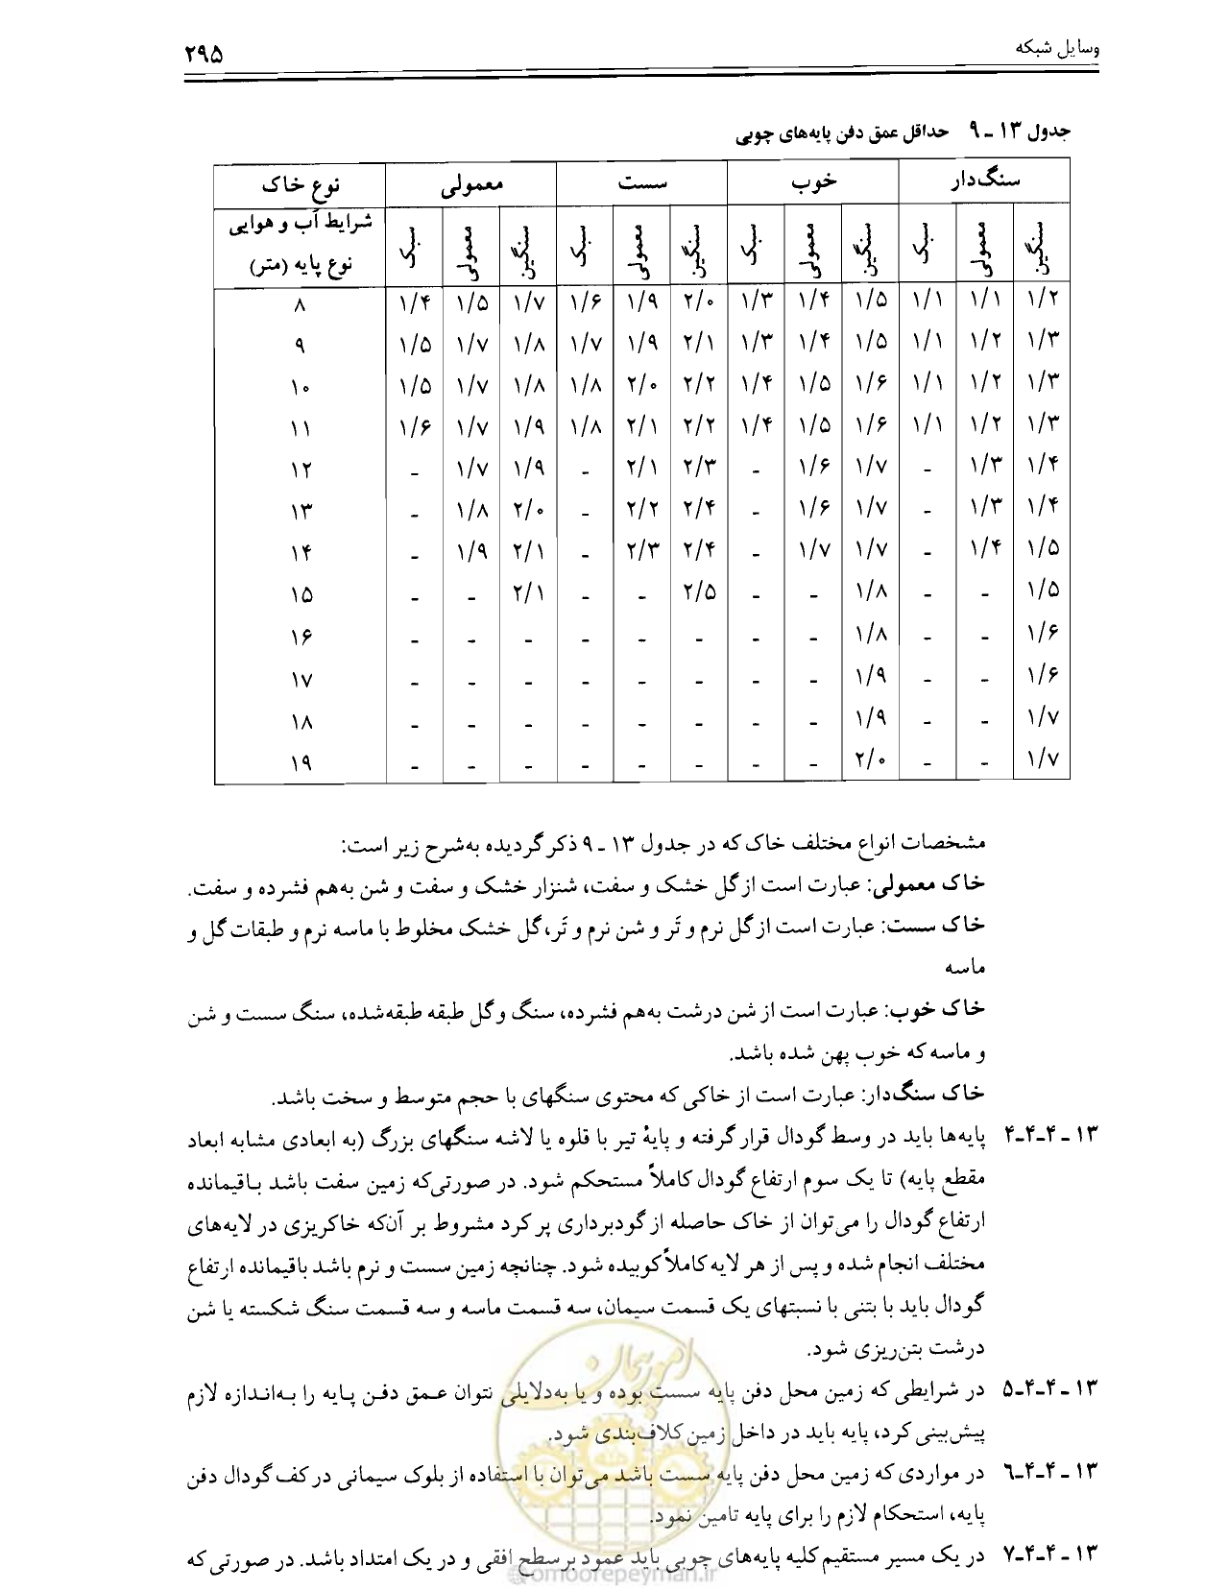 وسایل شبکه ۲۹۵
جدول ۱۳ ـ ۹ حداقل عمق دفن پایه‌های چوبی
نوع خاک معمولی سست خوب سنگ‌دار
شرایط آب و هوایی
نوع پایه (متر)
سبک معمولی سنگین سبک معمولی سنگین سبک معمولی سنگین سبک معمولی سنگین
۸ ۱/۴ ۱/۵ ۱/۷ ۱/۶ ۱/۹ ۲/۰ ۱/۳ ۱/۴ ۱/۵ ۱/۱ ۱/۱ ۱/۲
۹ ۱/۵ ۱/۷ ۱/۸ ۱/۷ ۱/۹ ۲/۱ ۱/۳ ۱/۴ ۱/۵ ۱/۱ ۱/۲ ۱/۳
۱۰ ۱/۵ ۱/۷ ۱/۸ ۱/۸ ۲/۰ ۲/۲ ۱/۴ ۱/۵ ۱/۶ ۱/۱ ۱/۲ ۱/۳
۱۱ ۱/۶ ۱/۷ ۱/۹ ۱/۸ ۲/۱ ۲/۲ ۱/۴ ۱/۵ ۱/۶ ۱/۱ ۱/۲ ۱/۳
۱۲ - ۱/۷ ۱/۹ - ۲/۱ ۲/۳ - ۱/۶ ۱/۷ - ۱/۳ ۱/۴
۱۳ - ۱/۸ ۲/۰ - ۲/۲ ۲/۴ - ۱/۶ ۱/۷ - ۱/۳ ۱/۴
۱۴ - ۱/۹ ۲/۱ - ۲/۳ ۲/۴ - ۱/۷ ۱/۷ - ۱/۴ ۱/۵
۱۵ - - ۲/۱ - - ۲/۵ - - ۱/۸ - - ۱/۵
۱۶ - - - - - - - - ۱/۸ - - ۱/۶
۱۷ - - - - - - - - ۱/۹ - - ۱/۶
۱۸ - - - - - - - - ۱/۹ - - ۱/۷
۱۹ - - - - - - - - ۲/۰ - - ۱/۷
مشخصات انواع مختلف خاک که در جدول ۱۳ ـ ۹ ذکر گردیده به‌شرح زیر است:
خاک معمولی: عبارت است از گل خشک و سفت، شنزار خشک و سفت و شن به‌هم فشرده و سفت.
خاک سست: عبارت است از گل نرم و تَر و شن نرم و تَر، گل خشک مخلوط با ماسه نرم و طبقات گل و
ماسه
خاک خوب: عبارت است از شن درشت به‌هم فشرده، سنگ و گل طبقه طبقه‌شده، سنگ سست و شن
و ماسه که خوب پهن شده باشد.
خاک سنگ‌دار: عبارت است از خاکی که محتوی سنگهای با حجم متوسط و سخت باشد.
۱۳ ـ ۴ـ۴ـ۴ پایه‌ها باید در وسط گودال قرار گرفته و پایهٔ تیر با قلوه یا لاشه سنگهای بزرگ (به ابعادی مشابه ابعاد
مقطع پایه) تا یک سوم ارتفاع گودال کاملاً مستحکم شود. در صورتی‌که زمین سفت باشد باقیمانده
ارتفاع گودال را می‌توان از خاک حاصله از گودبرداری پر کرد مشروط بر آن‌که خاکریزی در لایه‌های
مختلف انجام شده و پس از هر لایه کاملاً کوبیده شود. چنانچه زمین سست و نرم باشد باقیمانده ارتفاع
گودال باید با بتنی با نسبتهای یک قسمت سیمان، سه قسمت ماسه و سه قسمت سنگ شکسته یا شن
درشت بتن‌ریزی شود.
۱۳ ـ ۴ـ۴ـ۵ در شرایطی که زمین محل دفن پایه سست بوده و یا به‌دلایلی نتوان عمق دفن پایه را به‌اندازه لازم
پیش‌بینی کرد، پایه باید در داخل زمین کلاف‌بندی شود.
۱۳ ـ ۴ـ۴ـ۶ در مواردی که زمین محل دفن پایه سست باشد می‌توان با استفاده از بلوک سیمانی در کف گودال دفن
پایه، استحکام لازم را برای پایه تامین نمود.
۱۳ ـ ۴ـ۴ـ۷ در یک مسیر مستقیم کلیه پایه‌های چوبی باید عمود بر سطح افقی و در یک امتداد باشد. در صورتی که
امور پیمان
@omoorepeyman.ir